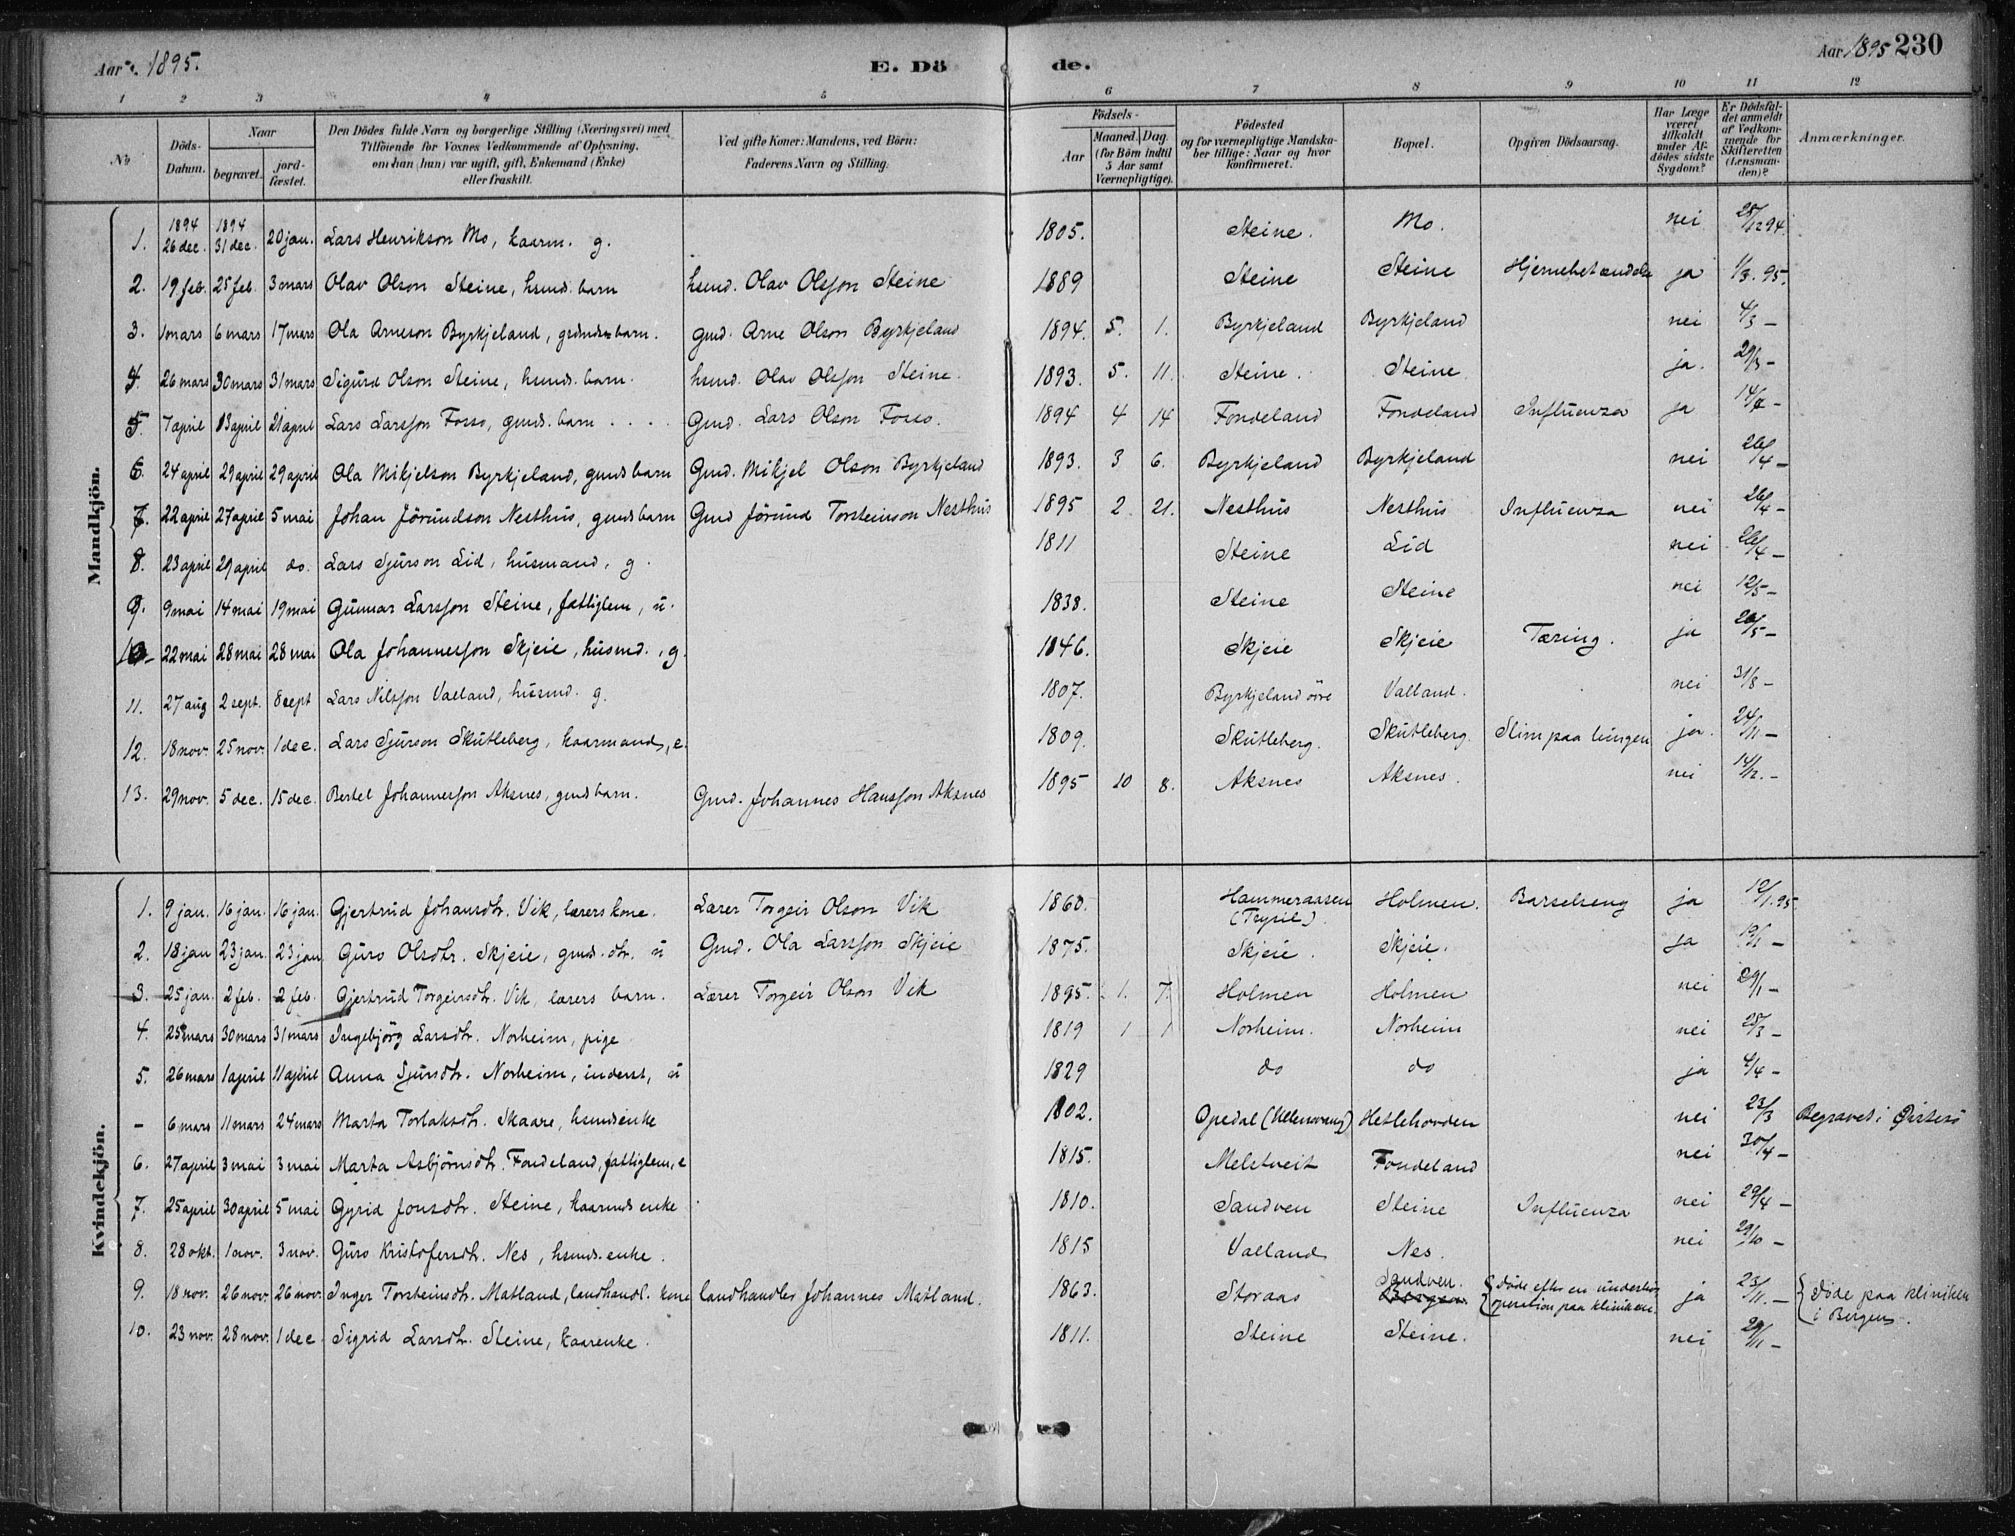 Aar 1895.
E. Dö
de.
Aar 1895
230
1 2 3 4 5 6 7 8 9 10 11 12
No
Döds-
Datum.
Naar
begravet.
jord-
fæstet.
Den Dödes fulde Navn og borgerlige Stilling (Næringsvei) med
Tilföiende for Voxnes Vedkommende af Oplysning.
om han (hun) var ugift, gift, Enkemand (Enke)
eller fraskilt.
Ved gifte Koner: Mandens, ved Börn:
Faderens Navn og Stilling.
Födsels-
Aar
Maaned. Dag.
(for Börn indtil
5 Aar samt
Værnepligtige).
Födested
og for værnepligtige Mandska-
ber tillige: Naar og hvor
konfirmeret.
Bopæl.
Opgiven Dödsaarsag.
Har Læge
været
tilkaldt
under Af-
dödes sidste
Sygdom?
Er Dödsfal-
det anmeldt
af Vedkom-
mende for
Skifteretten
(Lensman-
den)?
Anmærkninger.
Mandkjön.
1. 1894 26 dec. 1894 31 dec. 20 jan. Lars Henrikson Mo, kaarm. g. 1805. Steine. Mo. nei 28/12 94.
2. 19 feb. 25 feb. 3 mars Olav Olson Steine, hsmd. barn hsmd. Olav Olsson Steine 1889 Steine Steine Hjernebetændelse ja 1/3. 95.
3. 1 mars 6 mars 17 mars Ola Arneson Byrkjeland, grdmds barn. gmd. Arne Olson Byrkjeland 1894. 5. 1. Byrkjeland Byrkjeland nei 4/3 –
4. 26 mars 30 mars 31 mars Sigurd Olson Steine, hsmds. barn. hsmd. Olav Olsson Steine. 1893. 5. 11. Steine. Steine. ja. 29/3 –
5. 7 april 13 april 21 april Lars Larsson Fosso, gmds. barn . . . . Gmd. Lars Olson Fosso. 1894 4 14 Fondeland Fondeland Influenza ja 14/4 –
6. 24 april 29 april 29 april Ola Mikjelson Byrkjeland, gmds barn Gmd. Mikjel Olson Byrkjeland 1893. 3 6. Byrkjeland Byrkjeland nei 26/4 –
7. 22 april 27 april 5 mai Johan Jörundson Nesthus, gmds barn Gmd Jörund Torsteinson Nesthus 1895 2 21. Nesthus Nesthus Influenza nei 26/4 –
8. 23 april 29 april do. Lars Sjurson Lid, husmand, g. 1811 Steine Lid nei 26/4 –
9. 9 mai 14 mai 19 mai Gunnar Larsson Steine, fattiglem, u. 1838. Steine Steine nei 12/5 –
10. 22 mai 28 mai 28 mai Ola Johannesson Skjeie, husmd., g. 1846. Skjeie Skjeie Tæring. ja 26/5 –
11. 27 aug 2 sept. 8 sept Lars Nilsson Valland, husmd. g. 1807. Byrkjeland övre Valland. nei 31/8 –
12. 18 nov. 25 nov. 1 dec. Lars Sjurson Skutleberg, kaarmand, e. 1809. Skutleberg. Skutleberg. Slim paa lungen ja. 24/11 –
13. 29 nov. 5 dec. 15 dec. Bertel Johannesson Aksnes, gmds barn. Gmd. Johannes Hansson Aksnes 1895 10 8. Aksnes Aksnes. nei 14/12. –
Kvindekjön.
1. 9 jan. 16 jan. 16 jan. Gjertrud Johansdtr. Vik, lærers kone. Lærer Torgeir Olson Vik 1860. Hammeraasen (Trysil). Holmen. Barselseng ja 12/1. 95.
2. 18 jan 23 jan. 23 jan Guro Olsdtr. Skjeie, gmds. dtr. u Gmd. Ola Larsson Skjeie 1875. Skjeie. Skjeie. ja 19/1 –
3. 25 jan. 2 feb. 2 feb. Gjertrud Torgeirsdtr. Vik, lærers barn. Lærer Torgeir Olson Vik 1895. 1. 7. Holmen Holmen nei 29/1 –
4. 25 mars 30 mars 31 mars Ingebjörg Larsdtr. Norheim, pige 1819 1 1 Norheim. Norheim nei 28/3 –
5. 26 mars 1 april 11 april Anna Sjursdtr. Norheim, inderst, u 1829 do do ja 4/4 –
– 6 mars 11 mars 24 mars Marta Torlaksdtr. Skaare, hsmds enke 1802. Opedal (Ullensvang) Hetlehovden nei 23/3 Begravet i Östesö
6. 27 april 3 mai 3 mai Marta Asbjörnsdtr. Fondeland, fattiglem, e 1815. Meletveit Fondeland nei 30/4 –
7. 25 april 30 april 5 mai Gyrid Jonsdtr. Steine, kaarmds enke 1810. Sandven Steine Influenza nei 29/4 –
8. 28 okt. 1 nov. 3 nov. Guro Kristofersdtr. Nes, hsmds. enke. 1815 Valland Nes. nei 29/10 –
9. 18 nov. 26 nov. 26 nov. Inger Torsteinsdtr. Matland, landhandl. kone landhandler Johannes Matland. 1863. Storaas Sandven. Bergen. Döde efter en operation paa kliniken. ja 23/11. – Döde paa kliniken i Bergen.
10. 23 nov. 28 nov. 1 dec Sigrid Larsdtr. Steine, kaarenke. 1811. Steine Steine. nei 29/11 –